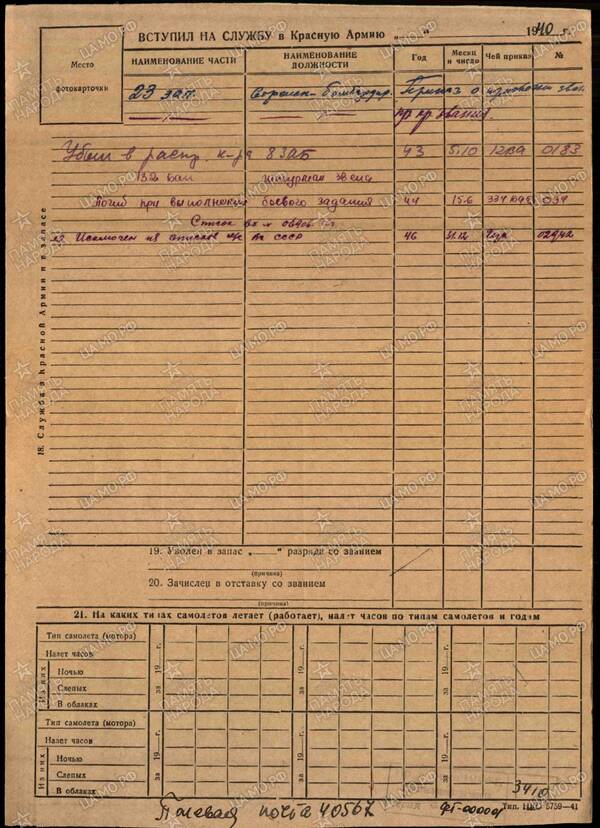 ВСТУПИЛ НА СЛУЖБУ в Красную Армию „____“ 1940 г.
Место фотокарточки
НАИМЕНОВАНИЕ ЧАСТИ
НАИМЕНОВАНИЕ ДОЛЖНОСТИ
Год
Месяц и число
Чей приказ
№
23 зап.
Стрелок-бомбардир.
Приказ о
пр. звания.
Убыл в расп. к-ра 8 ЗАБ 43 5.10 12ВА 0183
132 бап штурман звена
Погиб при выполнении боевого задания 44 15.6 334 бад 039
Список
Исключен из списков ВС СССР 46 31.12
18. Служба в Красной Армии и в запасе
19. Уволен в запас „____“ разряда со званием
(причина)
20. Зачислен в отставку со званием
(причина)
21. На каких типах самолетов летает (работает), налет часов по типам самолетов и годам
Тип самолета (мотора)
Налет часов
Из них
Ночью
Слепых
В облаках
за 19 —г.
за 19 —г.
за 19 —г.
Тип самолета (мотора)
Налет часов
Из них
Ночью
Слепых
В облаках
за 19 —г.
за 19 —г.
за 19 —г.
3410
Полевая почта 40567
Тип. НКО 5759—41
ЦАМО.РФ
ПАМЯТЬ НАРОДА